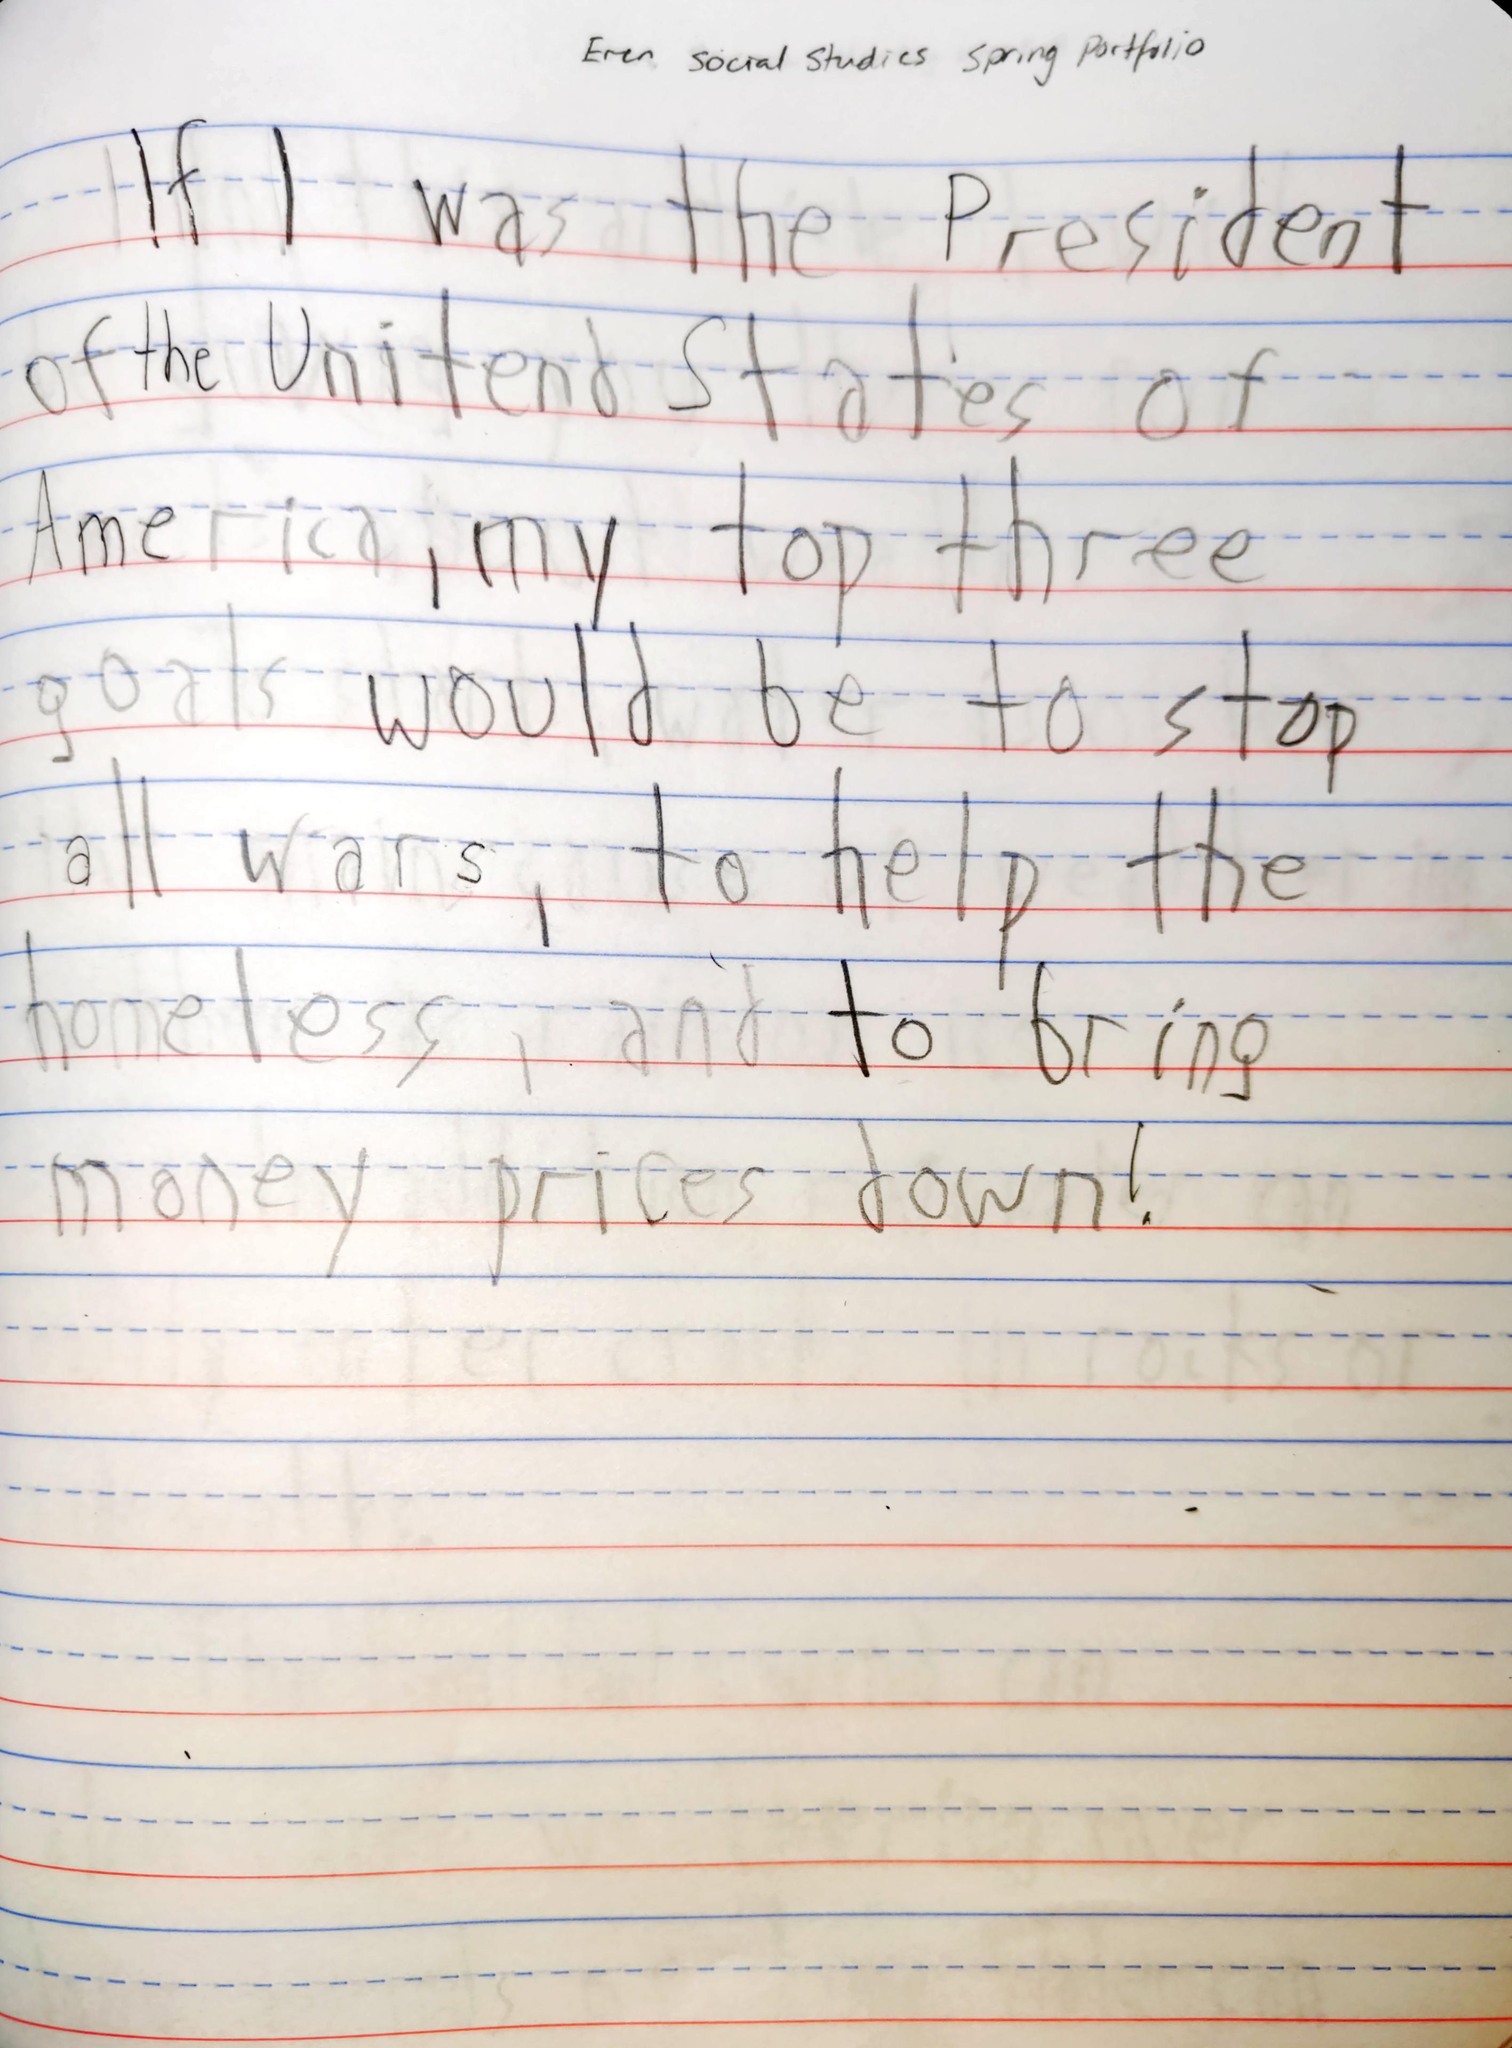 Eren Social Studies Spring Portfolio
If I was the President
of the Unitend States of
America, my top three
goals would be to stop
all wars, to help the
homeless, and to bring
money prices down!